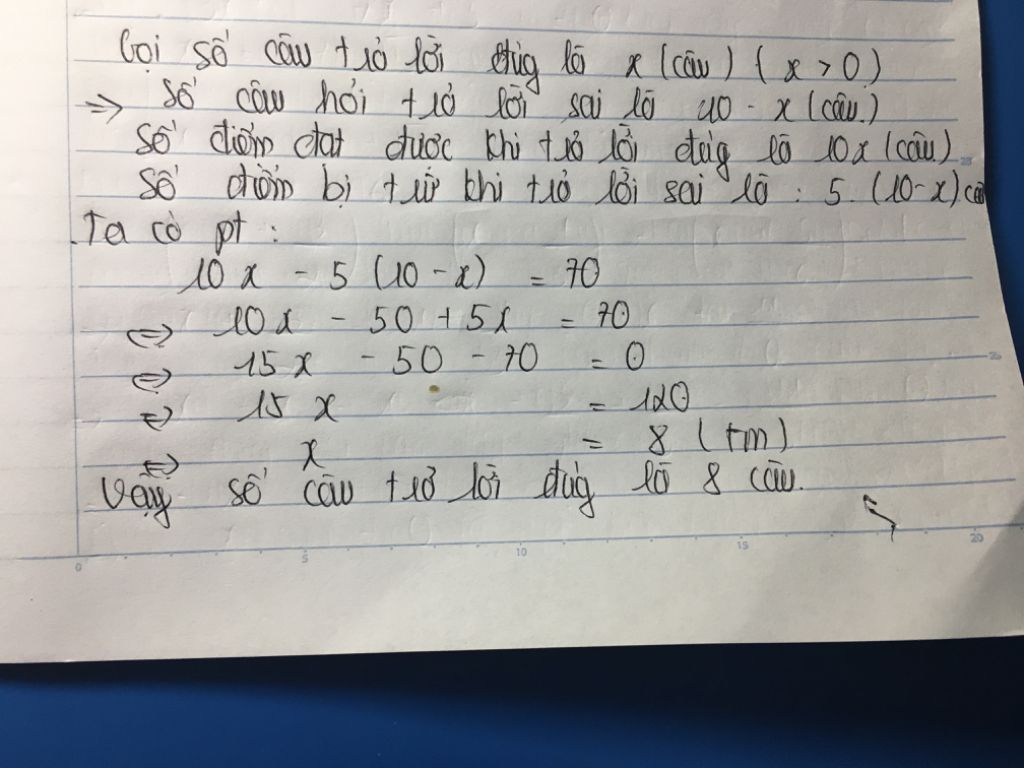 Gọi số câu trả lời đúg là x (câu) ( x > 0 )
=> số câu hỏi trả lời sai là 10 - x (câu)
Số điểm đạt được khi trả lời đúg là 10x (câu)
Số điểm bị trừ khi trả lời sai là : 5. (10-x) câu
Ta có pt :
10 x - 5 (10 - x) = 70
<=> 10x - 50 + 5x = 70
<=> 15 x - 50 - 70 = 0
<=> 15 x = 120
<=> x = 8 ( tm )
Vậy số câu trả lời đúg là 8 câu.
0 5 10 15 20